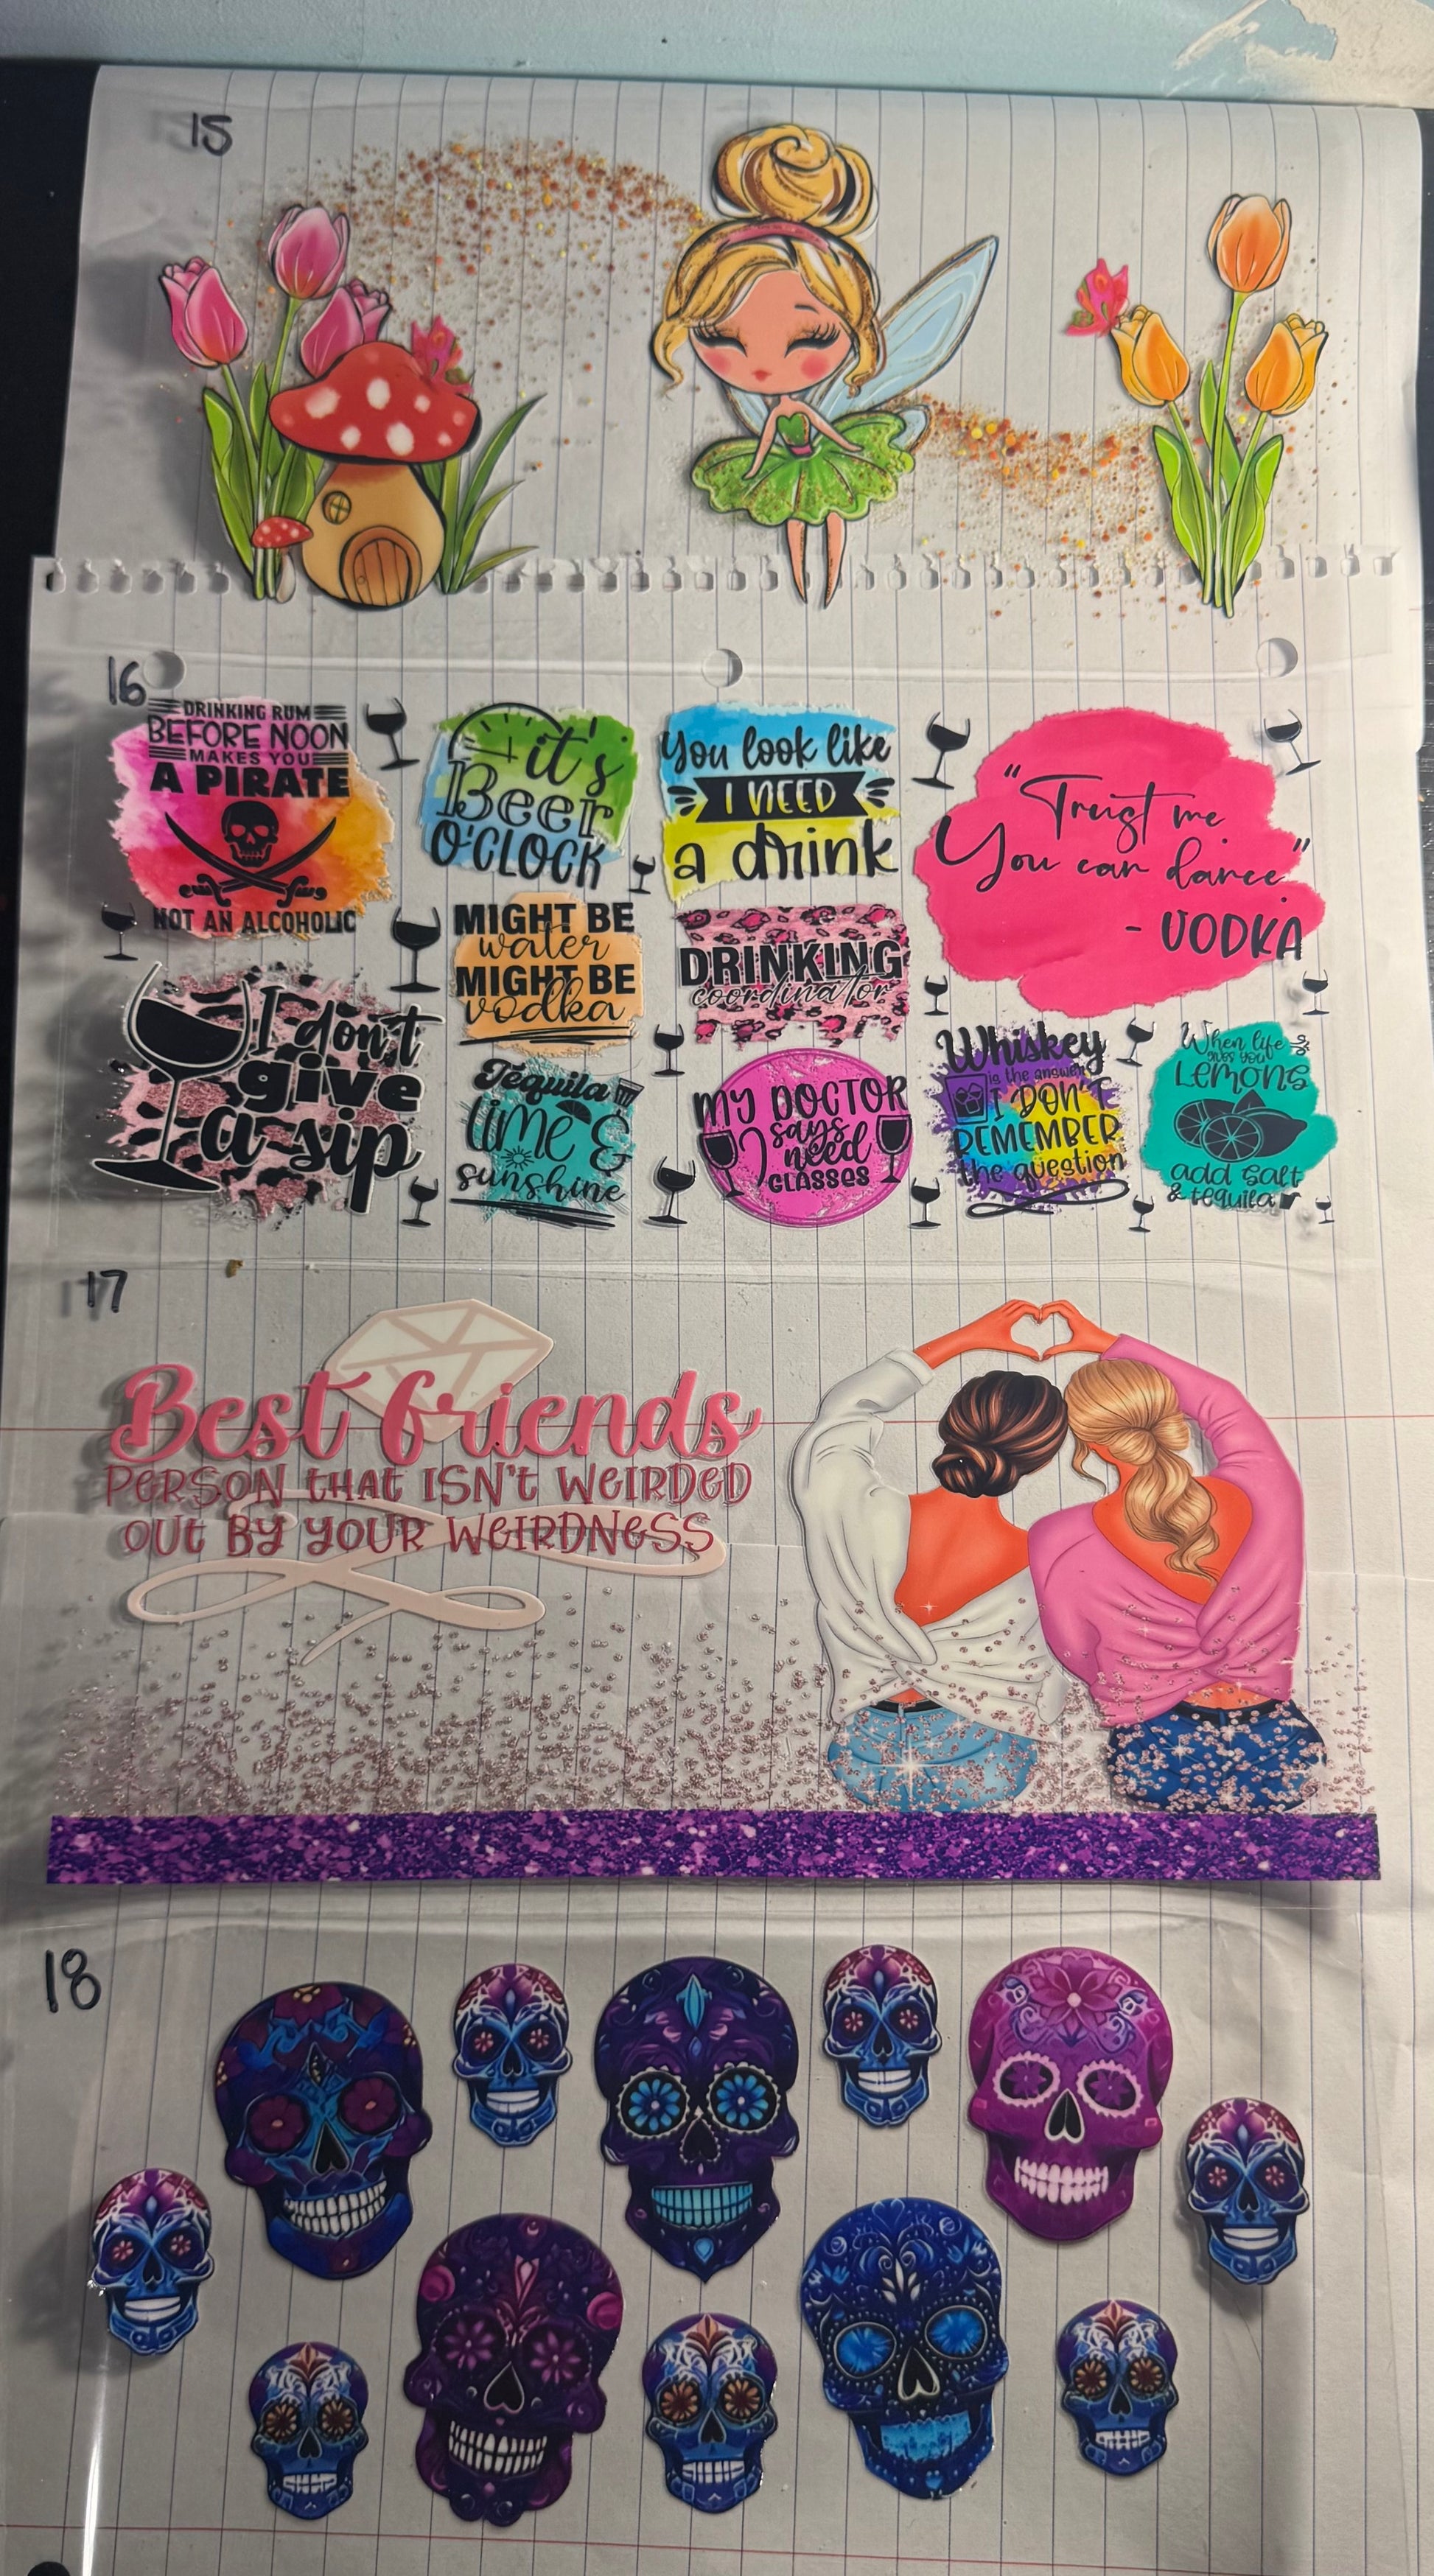 15
16
DRINKING RUM
BEFORE NOON
MAKES YOU
A PIRATE
NOT AN ALCOHOLIC
it's
Beer
O'CLOCK
You look like
I NEED
a drink
"Trust me
You can dance"
- VODKA
MIGHT BE
water
MIGHT BE
vodka
DRINKING
coordinator
I don't
give
a sip
Tequila
lime &
sunshine
MY DOCTOR
says
I need
GLASSES
Whiskey
is the answer
I DON'T
REMEMBER
the question
When life
gives you
LEMONS
add salt
& tequila
17
Best friends
PERSON tHAt ISN't WeIRDeD
OUt BY YOUR WeIRDNeSS
18